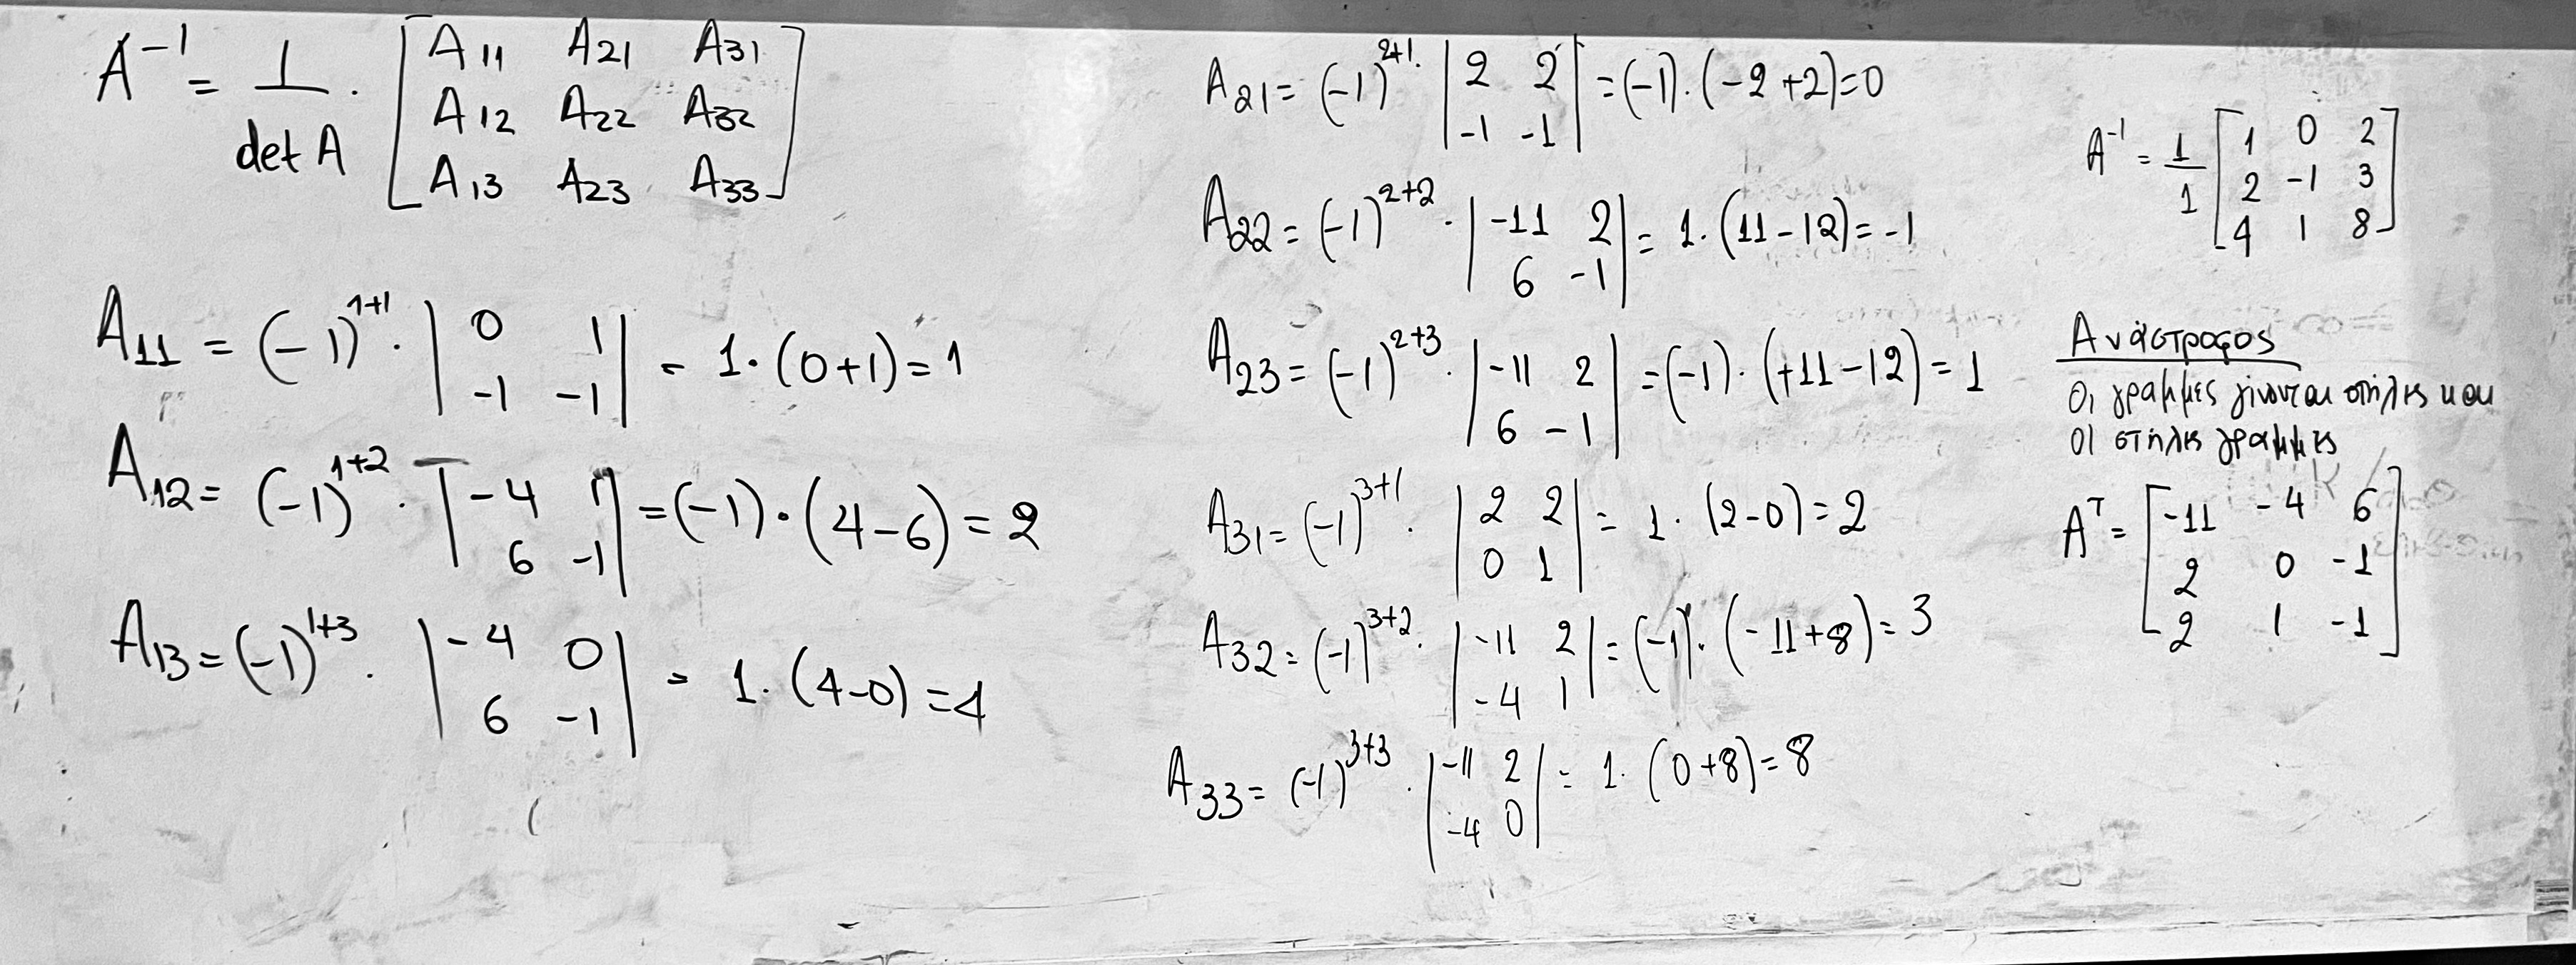 A⁻¹ = 1/det A · [A11 A21 A31
A12 A22 A32
A13 A23 A33]
A11 = (-1)¹⁺¹ · |0 1
-1 -1| = 1·(0+1)=1
A12 = (-1)¹⁺² · |-4 1
6 -1| = (-1)·(4-6)=2
A13 = (-1)¹⁺³ · |-4 0
6 -1| = 1·(4-0)=4
A21 = (-1)²⁺¹· |2 2
-1 -1| = (-1)·(-2+2)=0
A22 = (-1)²⁺² · |-11 2
6 -1| = 1·(11-12)=-1
A23 = (-1)²⁺³ · |-11 2
6 -1| = (-1)·(+11-12)=1
A31 = (-1)³⁺¹ · |2 2
0 1| = 1·(2-0)=2
A32 = (-1)³⁺² · |-11 2
-4 1| = (-1)·(-11+8)=3
A33 = (-1)³⁺³ · |-11 2
-4 0| = 1·(0+8)=8
A⁻¹ = 1/1 [1 0 2
2 -1 3
4 1 8]
Ανάστροφος
Οι γραμμές γίνονται στήλες και
οι στήλες γραμμές
Aᵀ = [-11 -4 6
2 0 -1
2 1 -1]